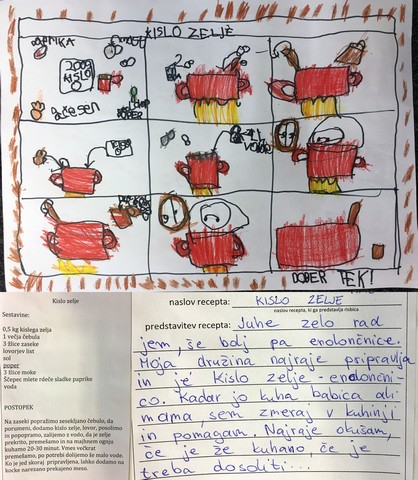 KISLO ZELJE
DOBER TEK!
Kislo zelje
Sestavine:
0,5 kg kislega zelja
1 večja čebula
3 žlice zaseke
lovorjev list
sol
poper
3 žlice moke
Ščepec mlete rdeče sladke paprike
voda
POSTOPEK
Na zaseki popražimo zesekljano čebulo, da
porumeni, dodamo kislo zelje, lovor, posolimo
in popopramo, zalijemo z vodo, da je zelje
prekrito, premešamo in na majhnem ognju
kuhamo 20-30 minut. Vmes večkrat
premešamo, po potrebi dolijemo še malo vode.
Ko je jed skoraj pripravljena, lahko dodamo na
kocke narezano prekajeno meso.
naslov recepta: KISLO ZELJE
naslov recepta, ki ga predstavlja risbica
predstavitev recepta: Juhe zelo rad
jem, še bolj pa enolončnice.
Moja družina najraje pripravlja
in je Kislo zelje - enolončni-
co. Kadar jo kuha babica ali
mama, sem zmeraj v kuhinji
in pomagam. Najraje okušam,
če je že kuhano, če je
treba dosoliti...